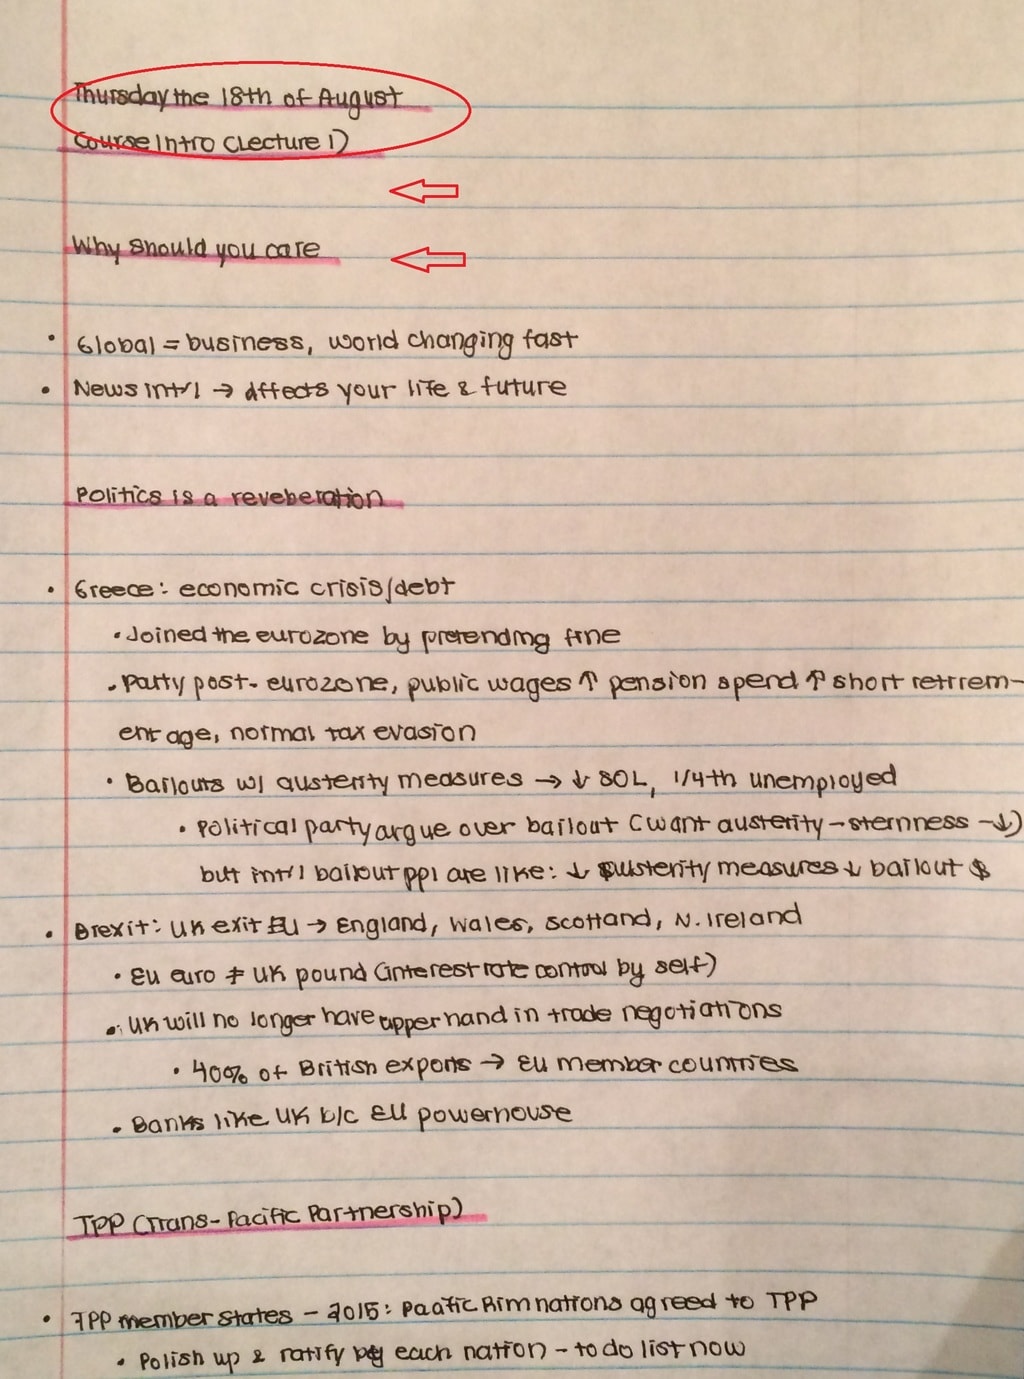 Thursday the 18th of August
Course Intro (Lecture 1)
Why should you care
• Global = business, world changing fast
• News int'l → affects your life & future
Politics is a reveberation
• Greece: economic crisis/debt
• Joined the eurozone by pretending fine
• Party post-eurozone, public wages ↑ pension spend ↑ short retirem-
ent age, normal tax evasion
• Bailouts w/ austerity measures → ↓ SOL, 1/4th unemployed
• Political party argue over bailout (want austerity - sternness - ↓)
but int'l bailout ppl are like: ↓ austerity measures ↓ bailout $
• Brexit: UK exit EU → England, Wales, Scotland, N. Ireland
• EU euro ≠ UK pound (interest rate control by self)
• UK will no longer have upper hand in trade negotiations
• 40% of British exports → EU member countries
• Banks like UK b/c EU powerhouse
TPP (Trans-Pacific Partnership)
• TPP member states - 2015: Pacific Rim nations agreed to TPP
• Polish up & ratify by each nation - to do list now